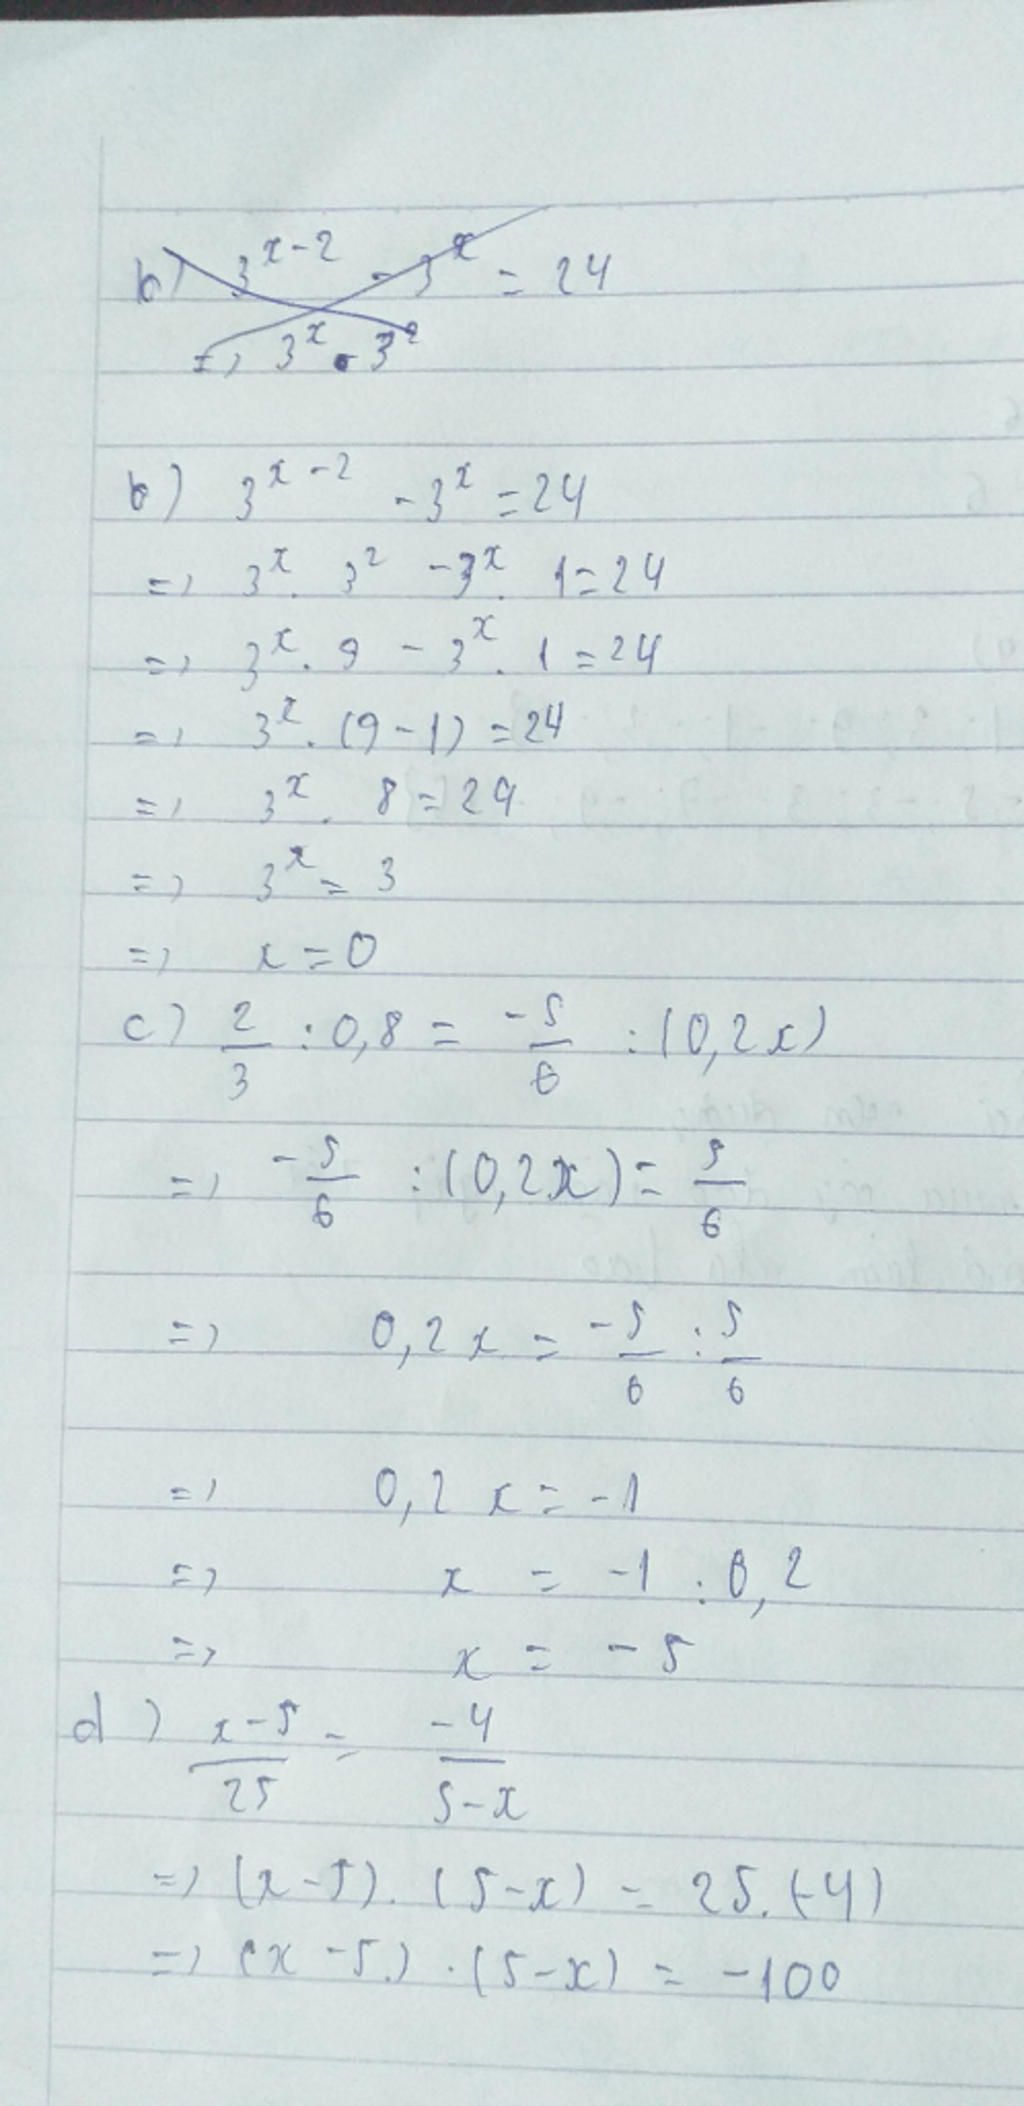 b) 3^{x-2} - 3^x = 24
=> 3^x . 3^2
b) 3^{x-2} - 3^x = 24
=> 3^x . 3^2 - 3^x . 1 = 24
=> 3^x . 9 - 3^x . 1 = 24
=> 3^x . (9-1) = 24
=> 3^x . 8 = 24
=> 3^x = 3
=> x = 0
c) 2/3 : 0,8 = -5/6 : (0,2x)
=> -5/6 : (0,2x) = 5/6
=> 0,2x = -5/6 : 5/6
=> 0,2x = -1
=> x = -1 : 0,2
=> x = -5
d) (x-5)/25 = -4/(5-x)
=> (x-5) . (5-x) = 25.(-4)
=> (x-5) . (5-x) = -100